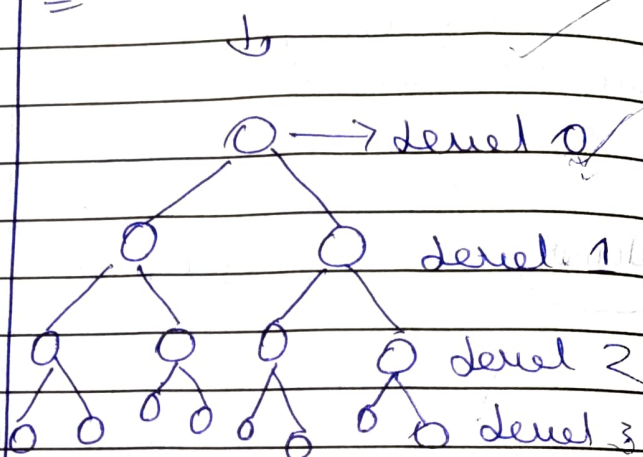 Level 0
Level 1
Level 2
Level 3